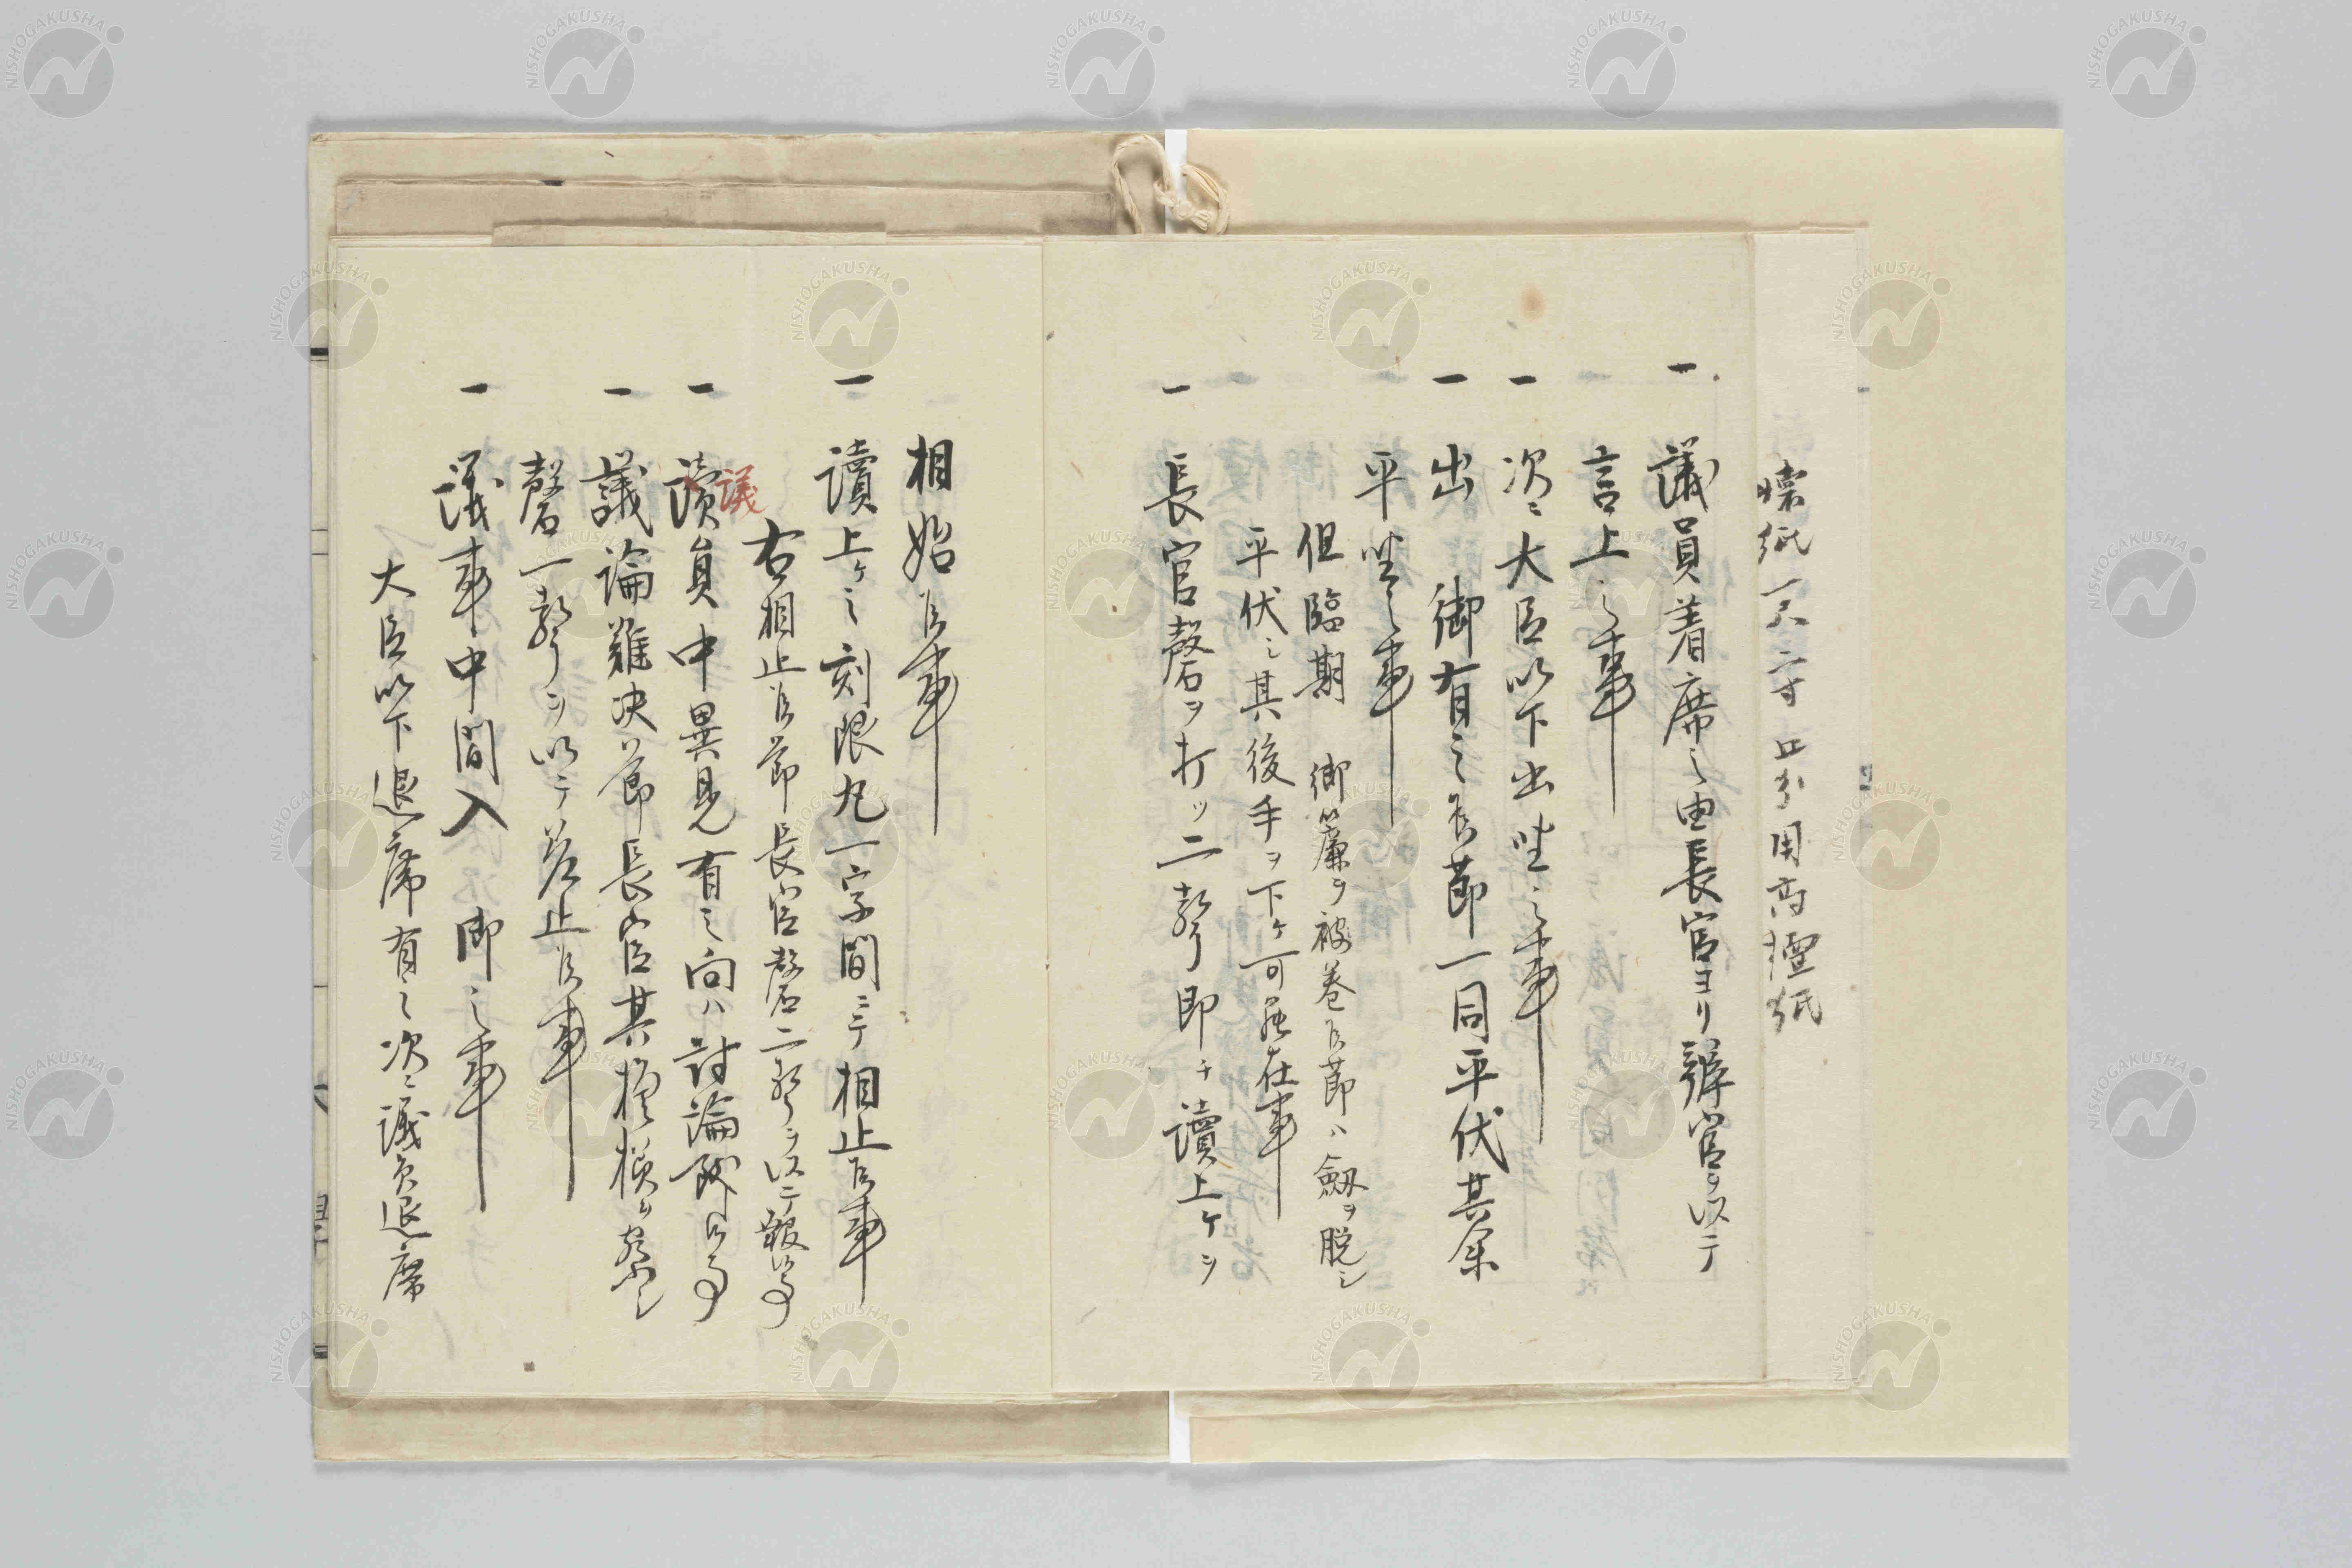 懐紙一尺二寸五分用高檀紙
一 議員着席之由長官ヨリ辨官ヲ以テ
言上之事
一 次ニ大臣以下出坐之事
一 出 御有之候節一同平伏其余
平坐之事
但臨期 御簾ヲ被巻候節ハ劔ヲ脱シ
平伏シ其後手ヲ下ケ可罷在事
一 長官磬ヲ打ツ二聲即チ讀上ケヲ
相始候事
一 讀上ケ之刻限九一字間ニテ相止候事
右相止候節長官磬二聲ヲ以テ報候事
議
一 讀員中異見有之向ハ討論致候事
一 議論難决節長官其模様ヲ察シ
磬一聲ヲ以テ差止候事
一 議事中間入 御之事
大臣以下退席有之次ニ議員退席
NISHOGAKUSHA